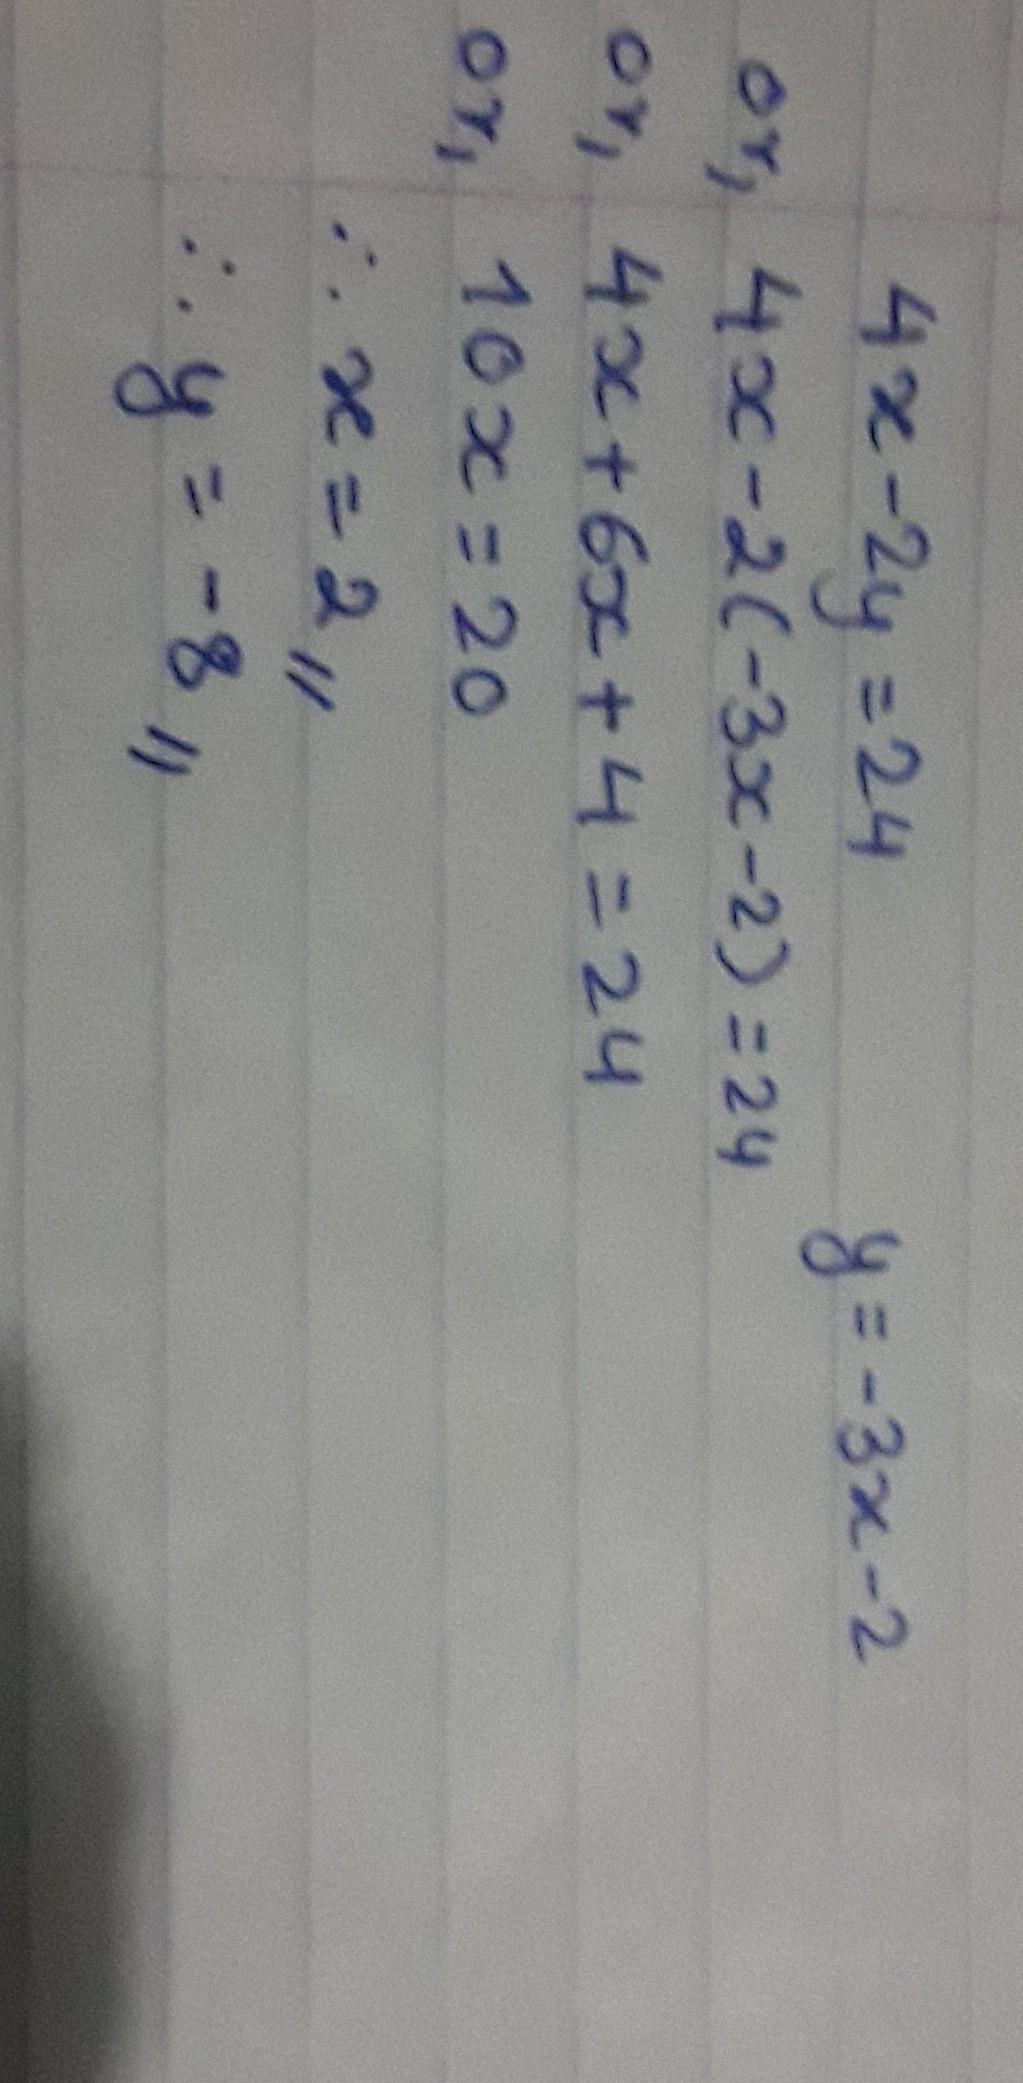 4x-2y=24 y=-3x-2
or, 4x-2(-3x-2)=24
or, 4x+6x+4=24
or, 10x=20
∴ x=2〃
∴ y=-8〃